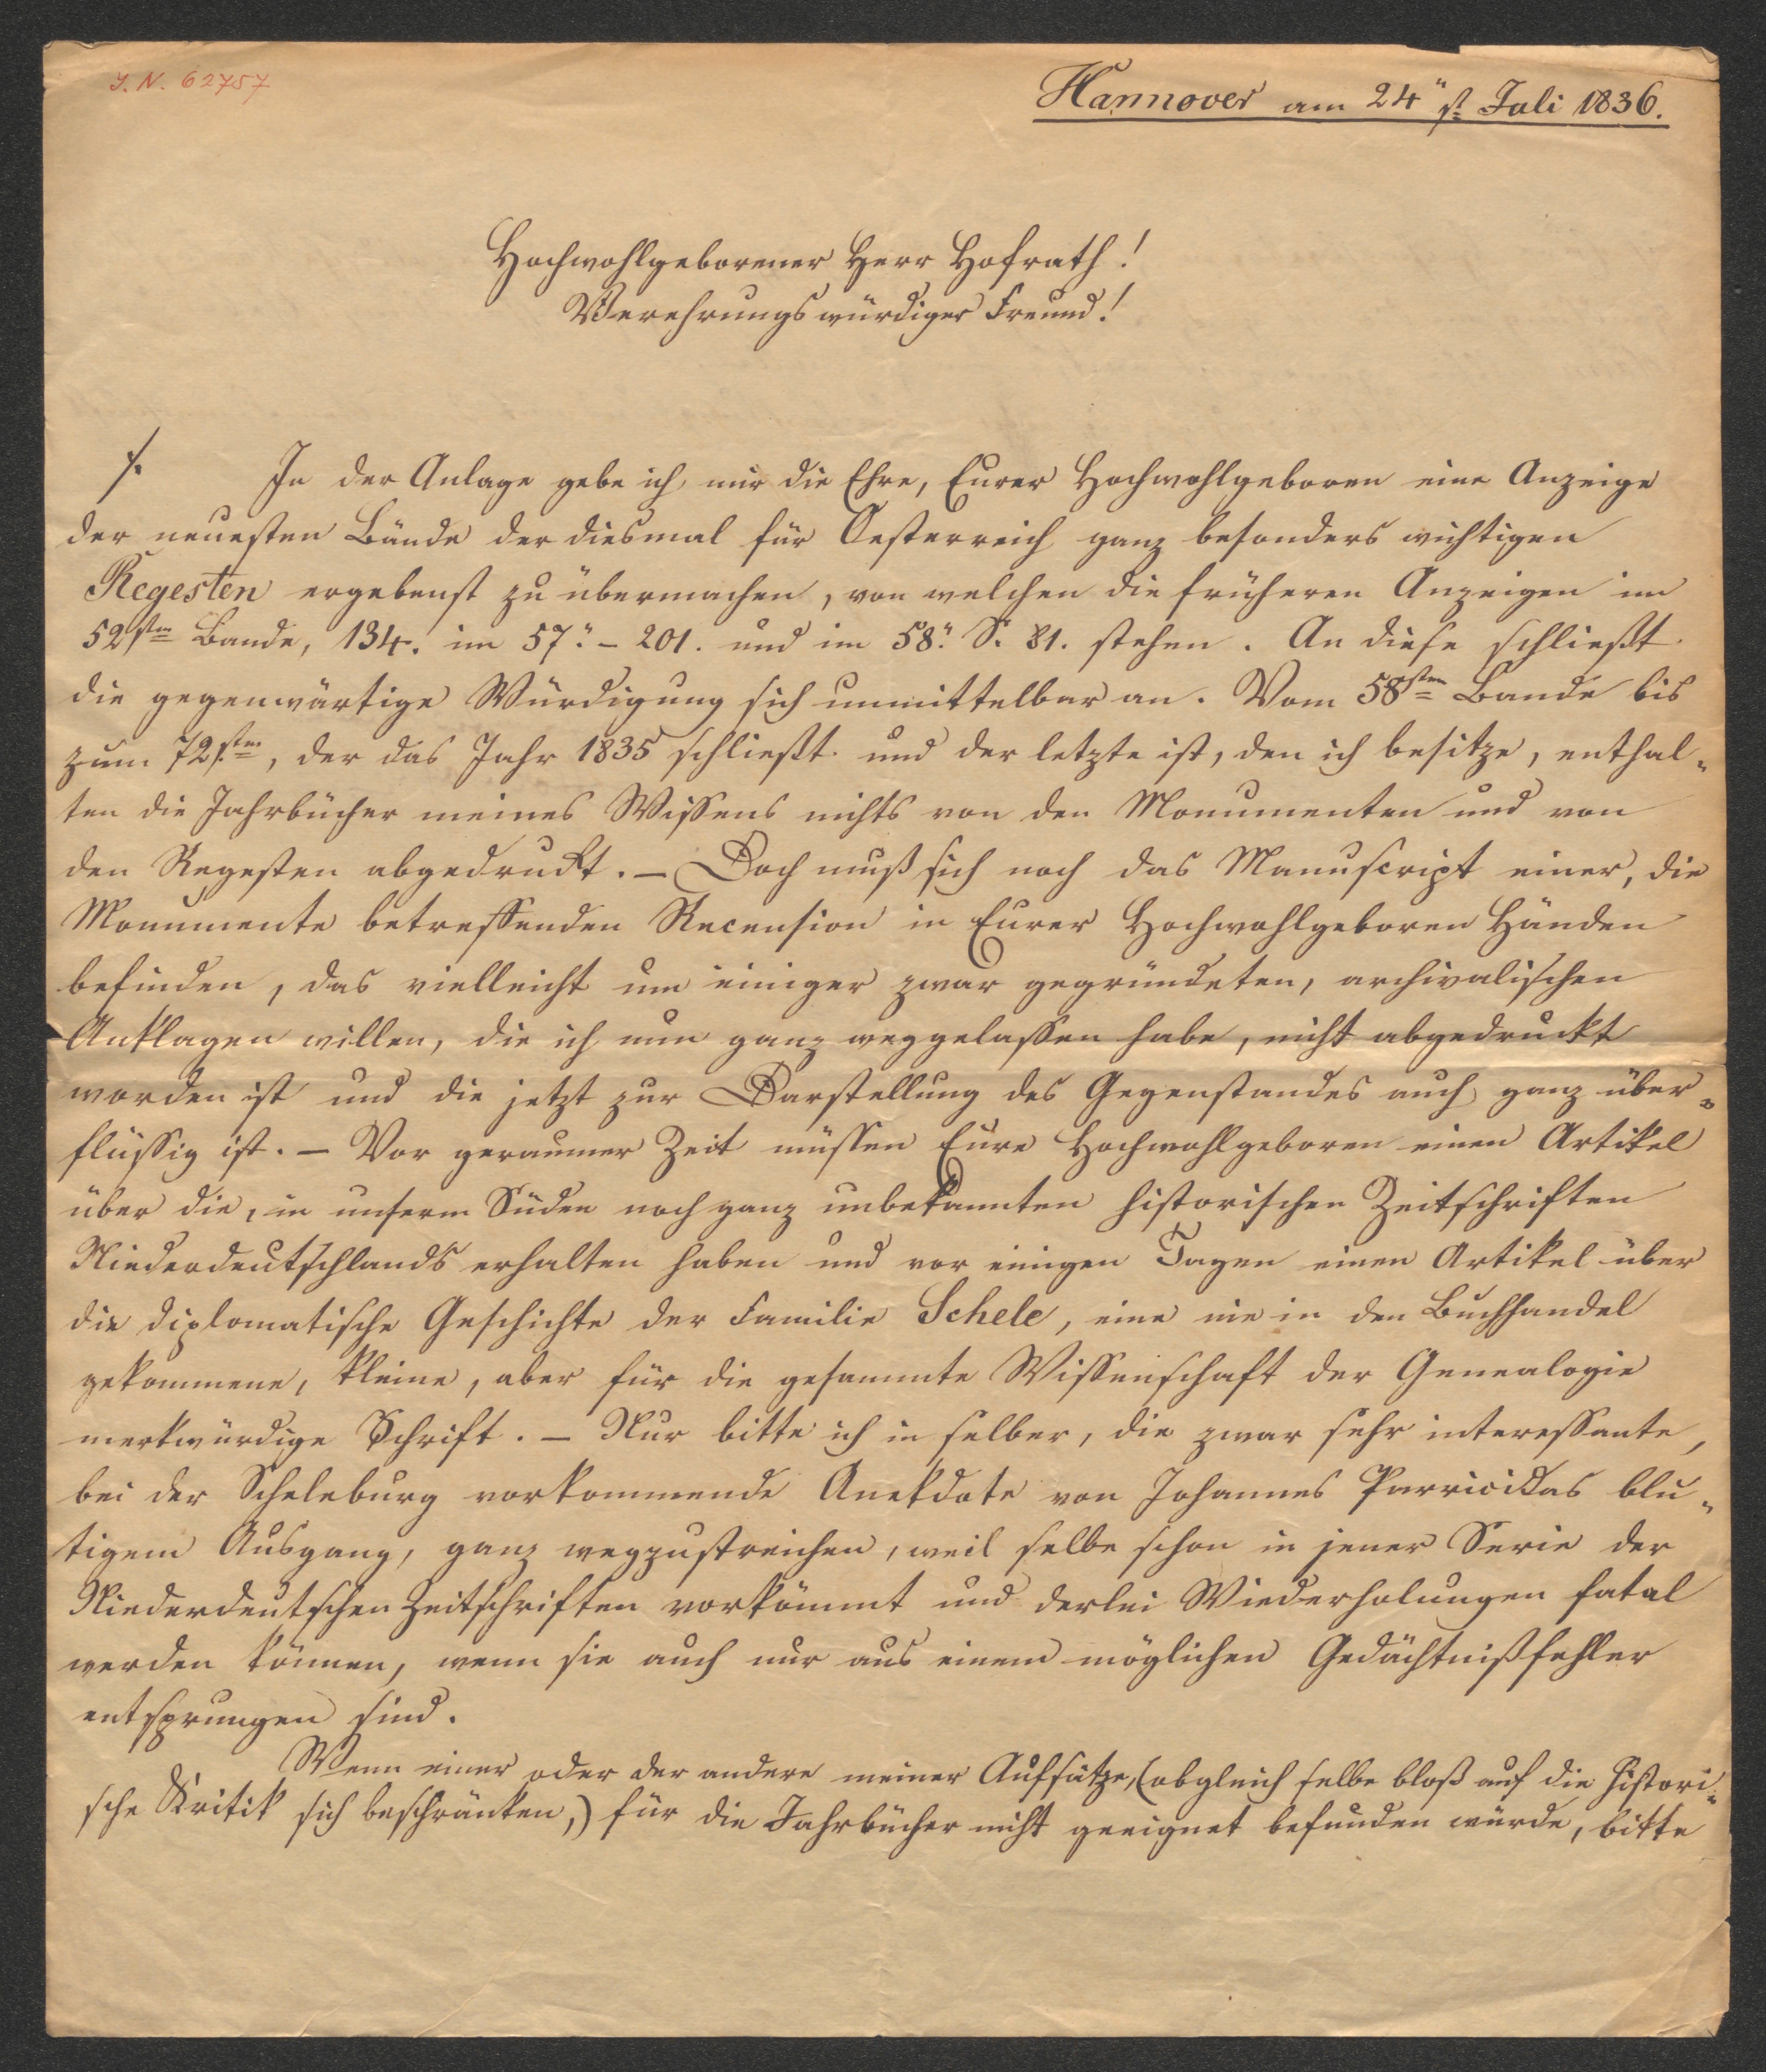 J. N. 62757
Hannover am 24" st Juli 1836.
Hochwohlgeborener Herr Hofrath!
Verehrungswürdiger Freund!
/. In der Anlage gebe ich mir die Ehre, Eurer Hochwohlgeboren eine Anzeige
der neuesten Bände der diesmal für Oesterreich ganz besonders wichtigen
Regesten ergebenst zu übermachen, von welchen die früheren Anzeigen im
52sten Bande, 134. im 57." – 201. und im 58." S. 81. stehen. An diese schließt
die gegenwärtige Würdigung sich unmittelbar an. Vom 58sten Bande bis
zum 72sten, der das Jahr 1835 schließt und der letzte ist, den ich besitze, enthal-
ten die Jahrbücher meines Wissens nichts von den Monumenten und von
den Regesten abgedruckt. – Doch muß sich noch das Manuscript einer, die
Monumente betreffenden Recension in Eurer Hochwohlgeboren Händen
befinden, das vielleicht um einiger zwar gegründeten, archivalischen
Anklagen willen, die ich nun ganz weggelassen habe, nicht abgedruckt
worden ist und die jetzt zur Darstellung des Gegenstandes auch ganz über-
flüssig ist. – Vor geraumer Zeit müssen Eure Hochwohlgeboren einen Artikel
über die, in unserm Süden noch ganz unbekannten historischen Zeitschriften
Niederdeutschlands erhalten haben und vor einigen Tagen einen Artikel über
die diplomatische Geschichte der Familie Schele, eine nie in den Buchhandel
gekommene, kleine, aber für die gesammte Wissenschaft der Genealogie
merkwürdige Schrift. – Nur bitte ich in selber, die zwar sehr interessante,
bei der Scheleburg vorkommende Anekdote von Johannes Parricidas blu-
tigem Ausgang, ganz wegzustreichen, weil selbe schon in jener Serie der
Niederdeutschen Zeitschriften vorkömmt und derlei Wiederholungen fatal
werden können, wenn sie auch nur aus einem möglichen Gedächtnißfehler
entsprungen sind.
Wenn einer oder der andere meiner Aufsätze, (obgleich selbe bloß auf die histori-
sche Kritik sich beschränken,) für die Jahrbücher nicht geeignet befunden würde, bitte